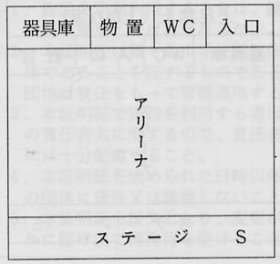 器具庫 物置 WC 入口
アリーナ
ステージ S